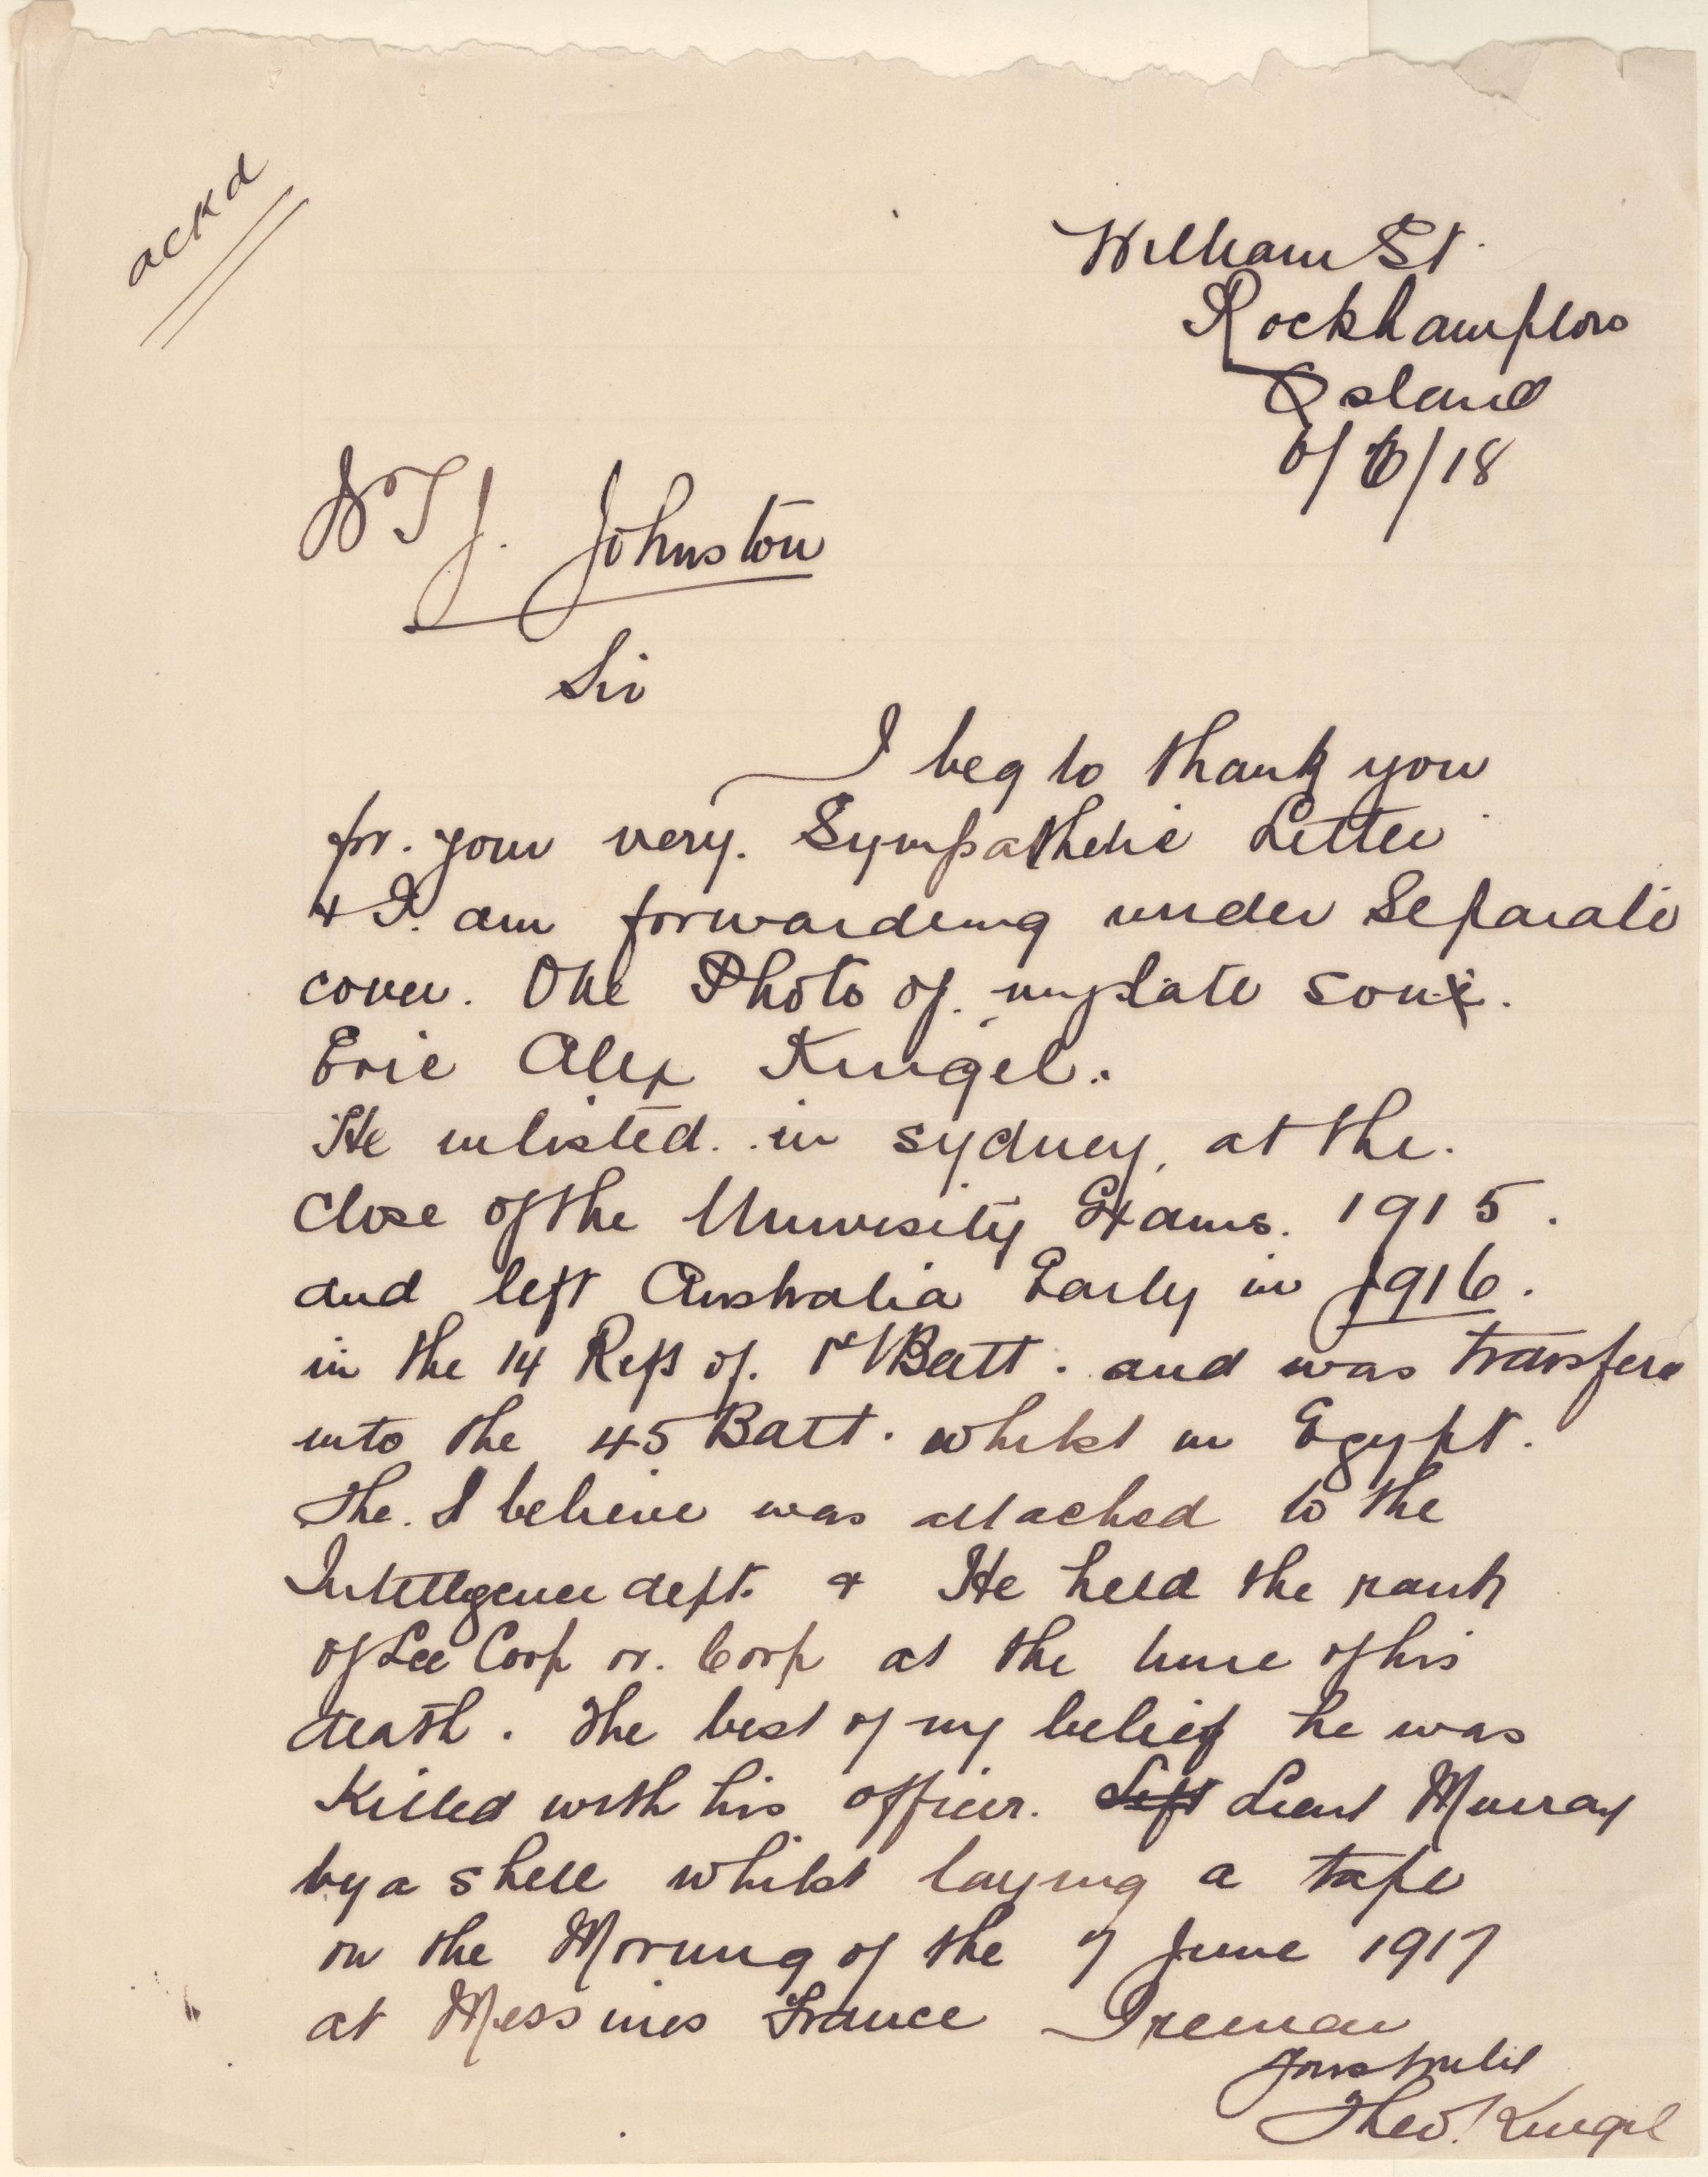 ackd
William St.
Rockhampton
Qsland
6/6/18
J. Johnston
Sir
I beg to thank you
for. your very. Sympathetic Letter
& I. am forwarding under Separate
cover. One Photo of. my late son.
Eric Alex Kingel.
He enlisted. in Sydney, at the.
Close of the University Exams. 1915.
and left Australia Early in 1916.
in the 14 Refs of. 1st Batt. and was transferd
into the 45 Batt. whilst in Egypt.
He. I believe was attached to the
Intelligence dept. & He held the rank
of Lce Corp or. Corp at the time of his
death. The best of my belief he was
Killed with his officer. Left Lieut Murray
by a shell whilst laying a tape
on the Morning of the 7 June 1917
at Messines France I remain
Yours truly
Theo. Kingel